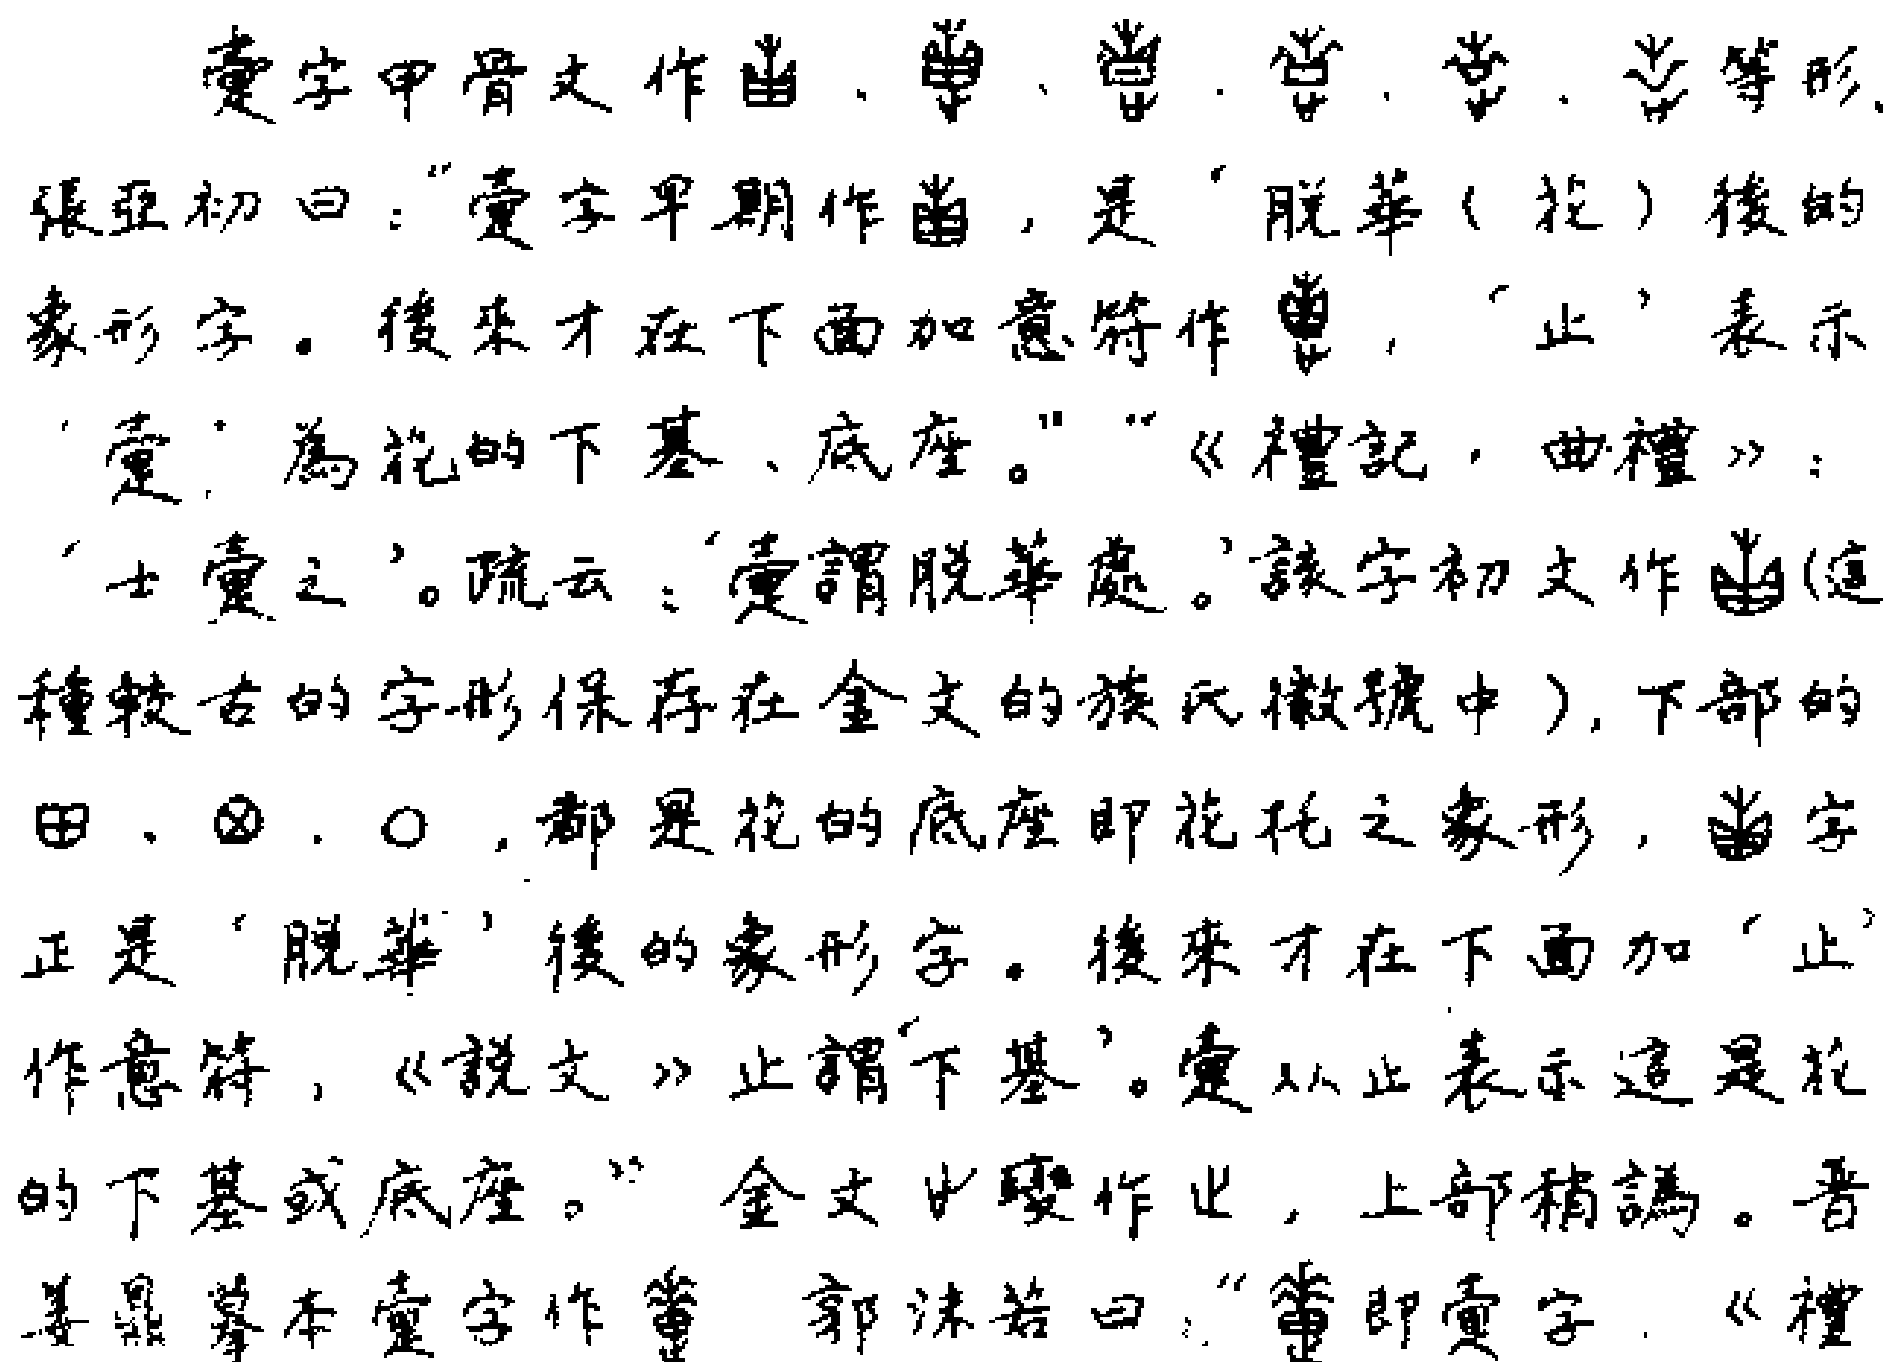 疐字甲骨文作、、、、、等形,
張亞初曰:“疐字早期作,是‘脱華(花)後的
象形字。後來才在下面加意符作,‘止’表示
‘疐’為花的下基、底座。”“《禮記·曲禮》:
‘士疐之’。疏云:‘疐謂脱華處。’該字初文作(這
種較古的字形保存在金文的族氏徽號中),下部的
田、⊗、○,都是花的底座即花托之象形,字
正是‘脱華’後的象形字。後來才在下面加‘止’
作意符,《説文》止謂‘下基’。疐从止表示這是花
的下基或底座。”金文變作止,上部稍譌。晋
姜鼎摹本疐字作 郭沫若曰:“即疐字.《禮